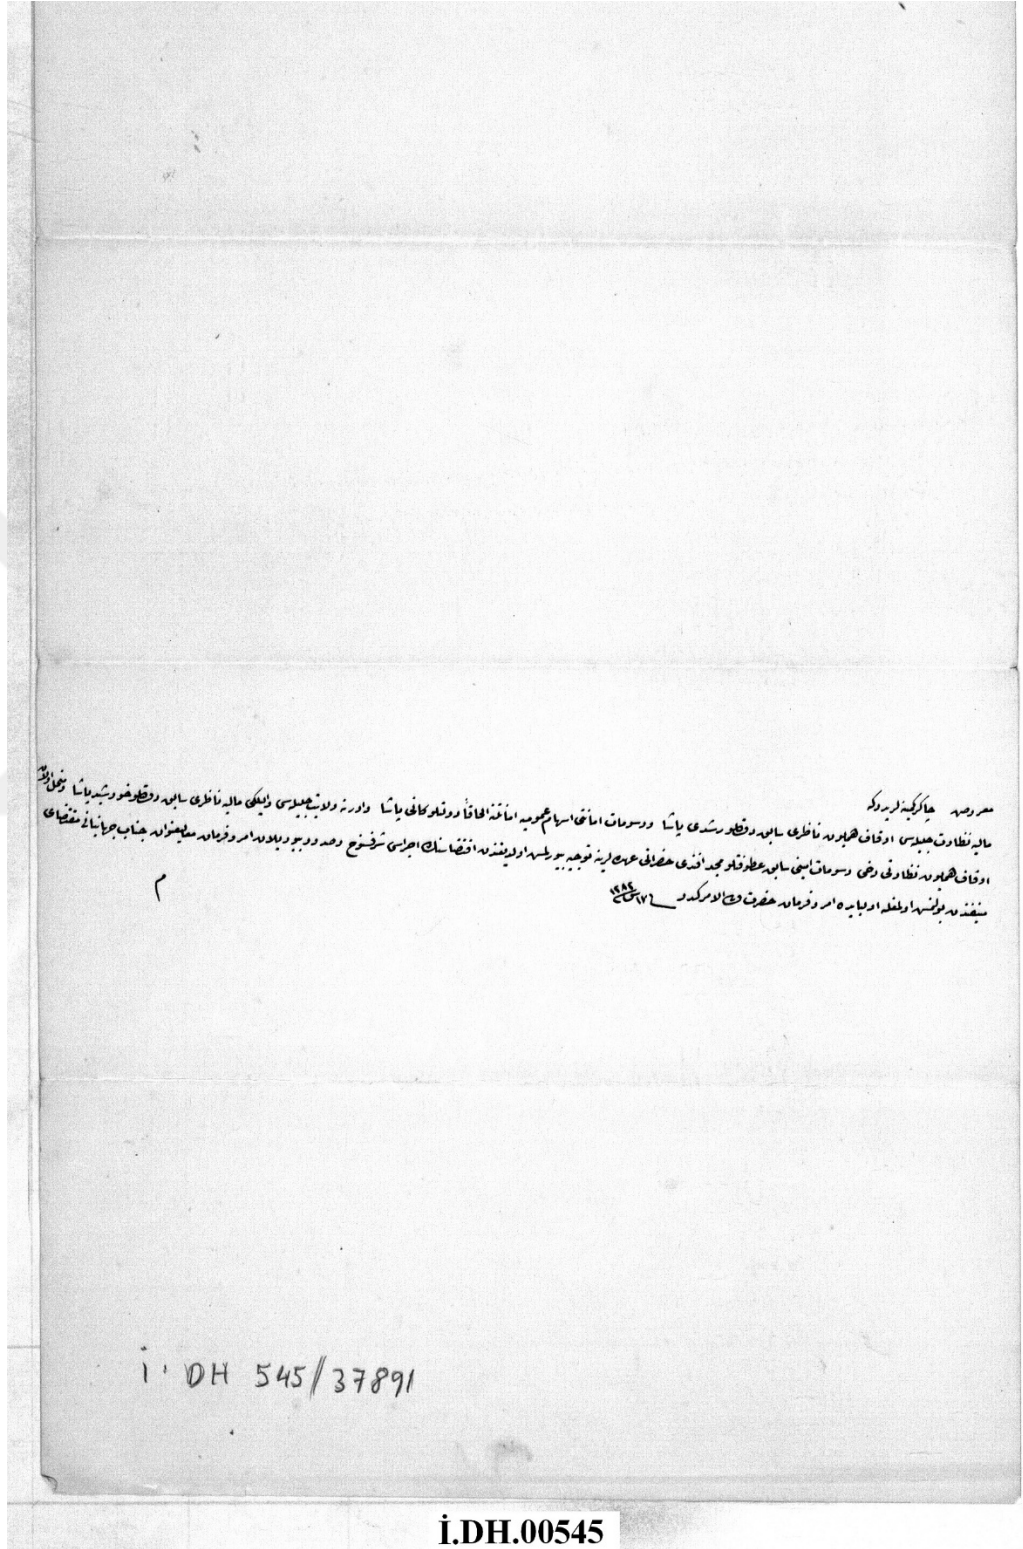 معروض چاكر كمينه لريدر كه
ماليه نظارت جليله سی اوقاف همايون ناظری سابق دولتلو رشدی پاشا و رسومات امانتی اسهام عموميه امانتنه الحاقاً دولتلو كانی پاشا و ادرنه ولايت جليله سی دخی ماليه ناظری سابق دولتلو خورشيد پاشا و منحل اولان
اوقاف همايون نظارتی دخی رسومات امينی سابق عطوفتلو مجد افندی حضراتی عهده لرينه توجيه بيورلمش اولديغندن اقتضاسنك اجراسی شرفسنوح و صدور بيوريلان امر و فرمان معاليعنوان جناب جهانبانی مقتضای
منيفندن بولنمش اولمغله اولبابده امر و فرمان حضرت ولی الامركدر ١٧ ١٢٨٢
م
İ. DH 545//37891
İ.DH.00545